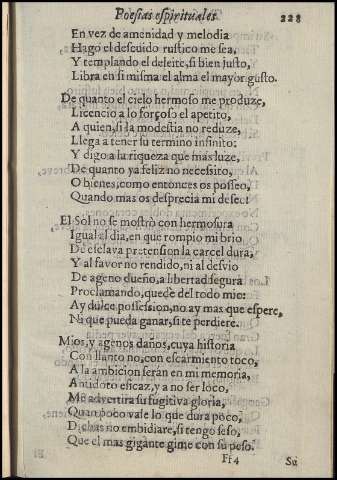 Poesias espirituales. 228
En vez de amenidad y melodia
Hago el descuido rustico me sea,
Y templando el deleite, si bien justo,
Libra en si misma el alma el mayor gusto.
De quanto el cielo hermoso me produze,
Licencio a lo forçoso el apetito,
A quien, si la modestia no reduze,
Llega a tener su termino infinito:
Y digo a la riqueza que mas luze,
De quanto ya feliz no necessito,
O bienes, como entonces os posseo,
Quando mas os desprecia mi desseo!
El Sol no se mostrò con hermosura
Igual al dia, en que rompio mi brio
De esclava pretension la carcel dura,
Y al favor no rendido, ni al desvio
De ageno dueño, a libertad segura
Proclamando, quedè del todo mio:
Ay dulce possession, no ay mas que espere,
Ni que pueda ganar, si te perdiere.
Mios, y agenos daños, cuya historia
Con llanto no, con escarmiento toco,
A la ambicion seràn en mi memoria,
Antidoto eficaz, y a no ser loco,
Me advertira su fugitiva gloria,
Quan poco vale lo que dura poco,
Dichas no embidiare, si tengo seso,
Que el mas gigante gime con su peso.
Ff4 Su